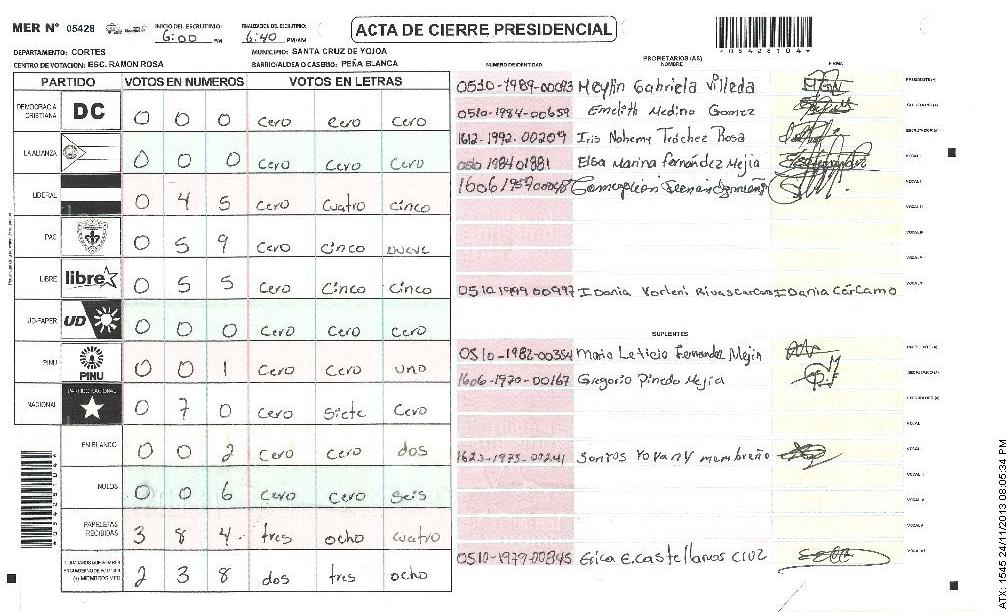 MER Nº 05428 INICIO DEL ESCRUTINIO: 6:00 PM FINALIZACION DEL ESCRUTINIO: 6:40 PM/AM ACTA DE CIERRE PRESIDENCIAL
DEPARTAMENTO: CORTES MUNICIPIO: SANTA CRUZ DE YOJOA
CENTRO DE VOTACION: ESC. RAMON ROSA BARRIO/ALDEA O CASERIO: PEÑA BLANCA
PARTIDO VOTOS EN NUMEROS VOTOS EN LETRAS
DEMOCRACIA CRISTIANA DC 0 0 0 cero cero cero
LA ALIANZA 0 0 0 cero cero cero
LIBERAL 0 4 5 cero cuatro cinco
PAC 0 5 9 cero cinco nueve
LIBRE libre 0 5 5 cero cinco cinco
UD-FAPER UD 0 0 0 cero cero cero
PINU PINU 0 0 1 cero cero uno
NACIONAL PARTIDO NACIONAL 0 7 0 cero siete cero
EN BLANCO 0 0 2 cero cero dos
NULOS 0 0 6 cero cero seis
PAPELETAS RECIBIDAS 3 8 4 tres ocho cuatro
(+) MIEMBROS MER 2 3 8 dos tres ocho
PROPIETARIOS (AS)
NUMERO DE IDENTIDAD NOMBRE FIRMA
0510-1989-00093 Heylin Gabriela Villeda
0510-1984-00659 Emelith Medina Gomez
1612-1992-00209 Iris Nohemy Tróchez Rosa
Elsa Marina Fernández Mejia
0510 1999 00997 IDania Yorleni Rivas Carcamo IDania Cárcamo
SUPLENTES
0510-1982-00354 Maria Leticia Fernandez Mejia
1606-1970-00167 Gregorio Pinedo Mejía
1623-1973-00241 Santos Yovany membreño
0510-1979-00345 Erica E. Castellanos Cruz
05428104
ATX: 1545 24/11/2013 08:05:34 PM